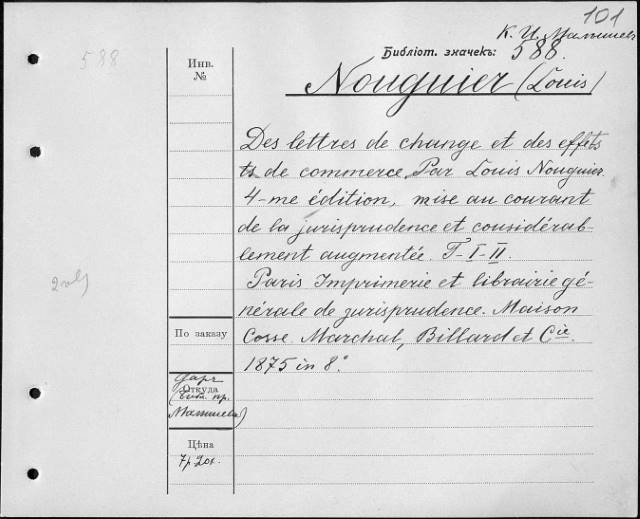 101
К. И. Малышев
588
Библіот. значекъ: 588.
Инв.
№
Nouguier (Louis)
Des lettres de change et des effets
ts de commerce. Par Louis Nouguier.
4-me édition, mise au courant
de la jurisprudence et considérab-
lement augmentée. T-I-II.
2 vol
Paris Imprimerie et librairie gé-
nérale de jurisprudence. Maison
По заказу
Cosse. Marchal, Billard et Cie.
1875 in 8°
Даръ
Откуда
(Библ. пр.
Малышева)
Цѣна
7р 20к.